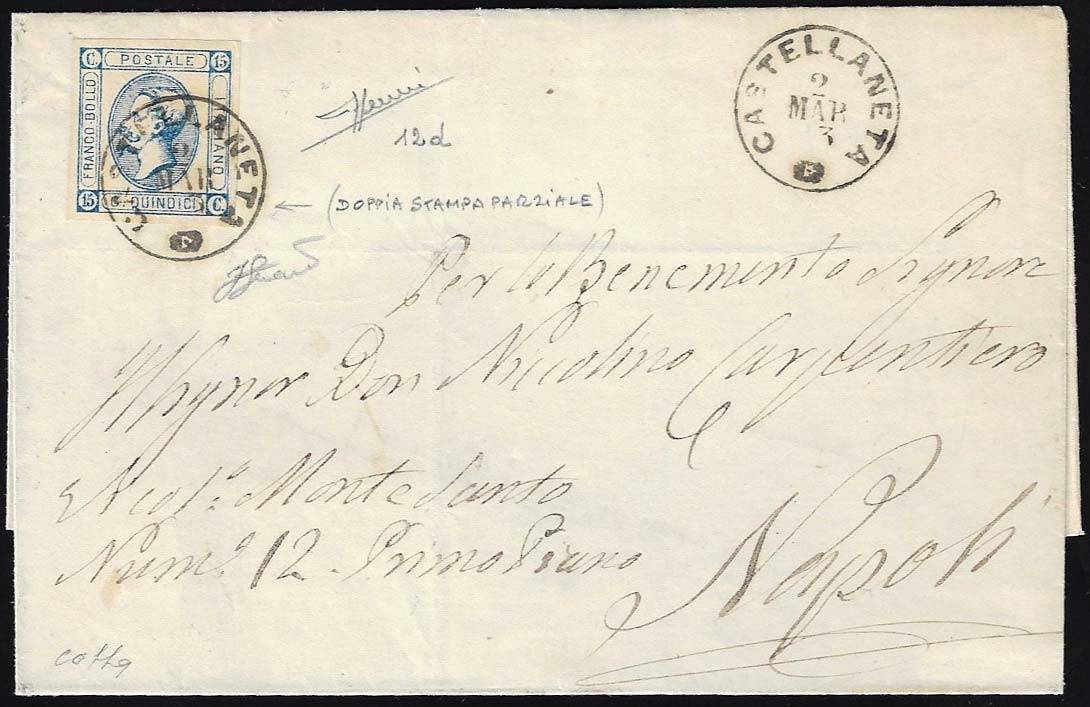 C. POSTALE 15
FRANCO-BOLLO
ITALIANO
15 C. QUINDICI C.
CASTELLANETA
2
MAR
3
CASTELLANETA
MAR
12d
(DOPPIA STAMPA PARZIALE)
Per il Benemerito Signore
Il Signor Don Nicolino Carpentiero
Montesanto
Num.º 12 Primo Piano
Napoli